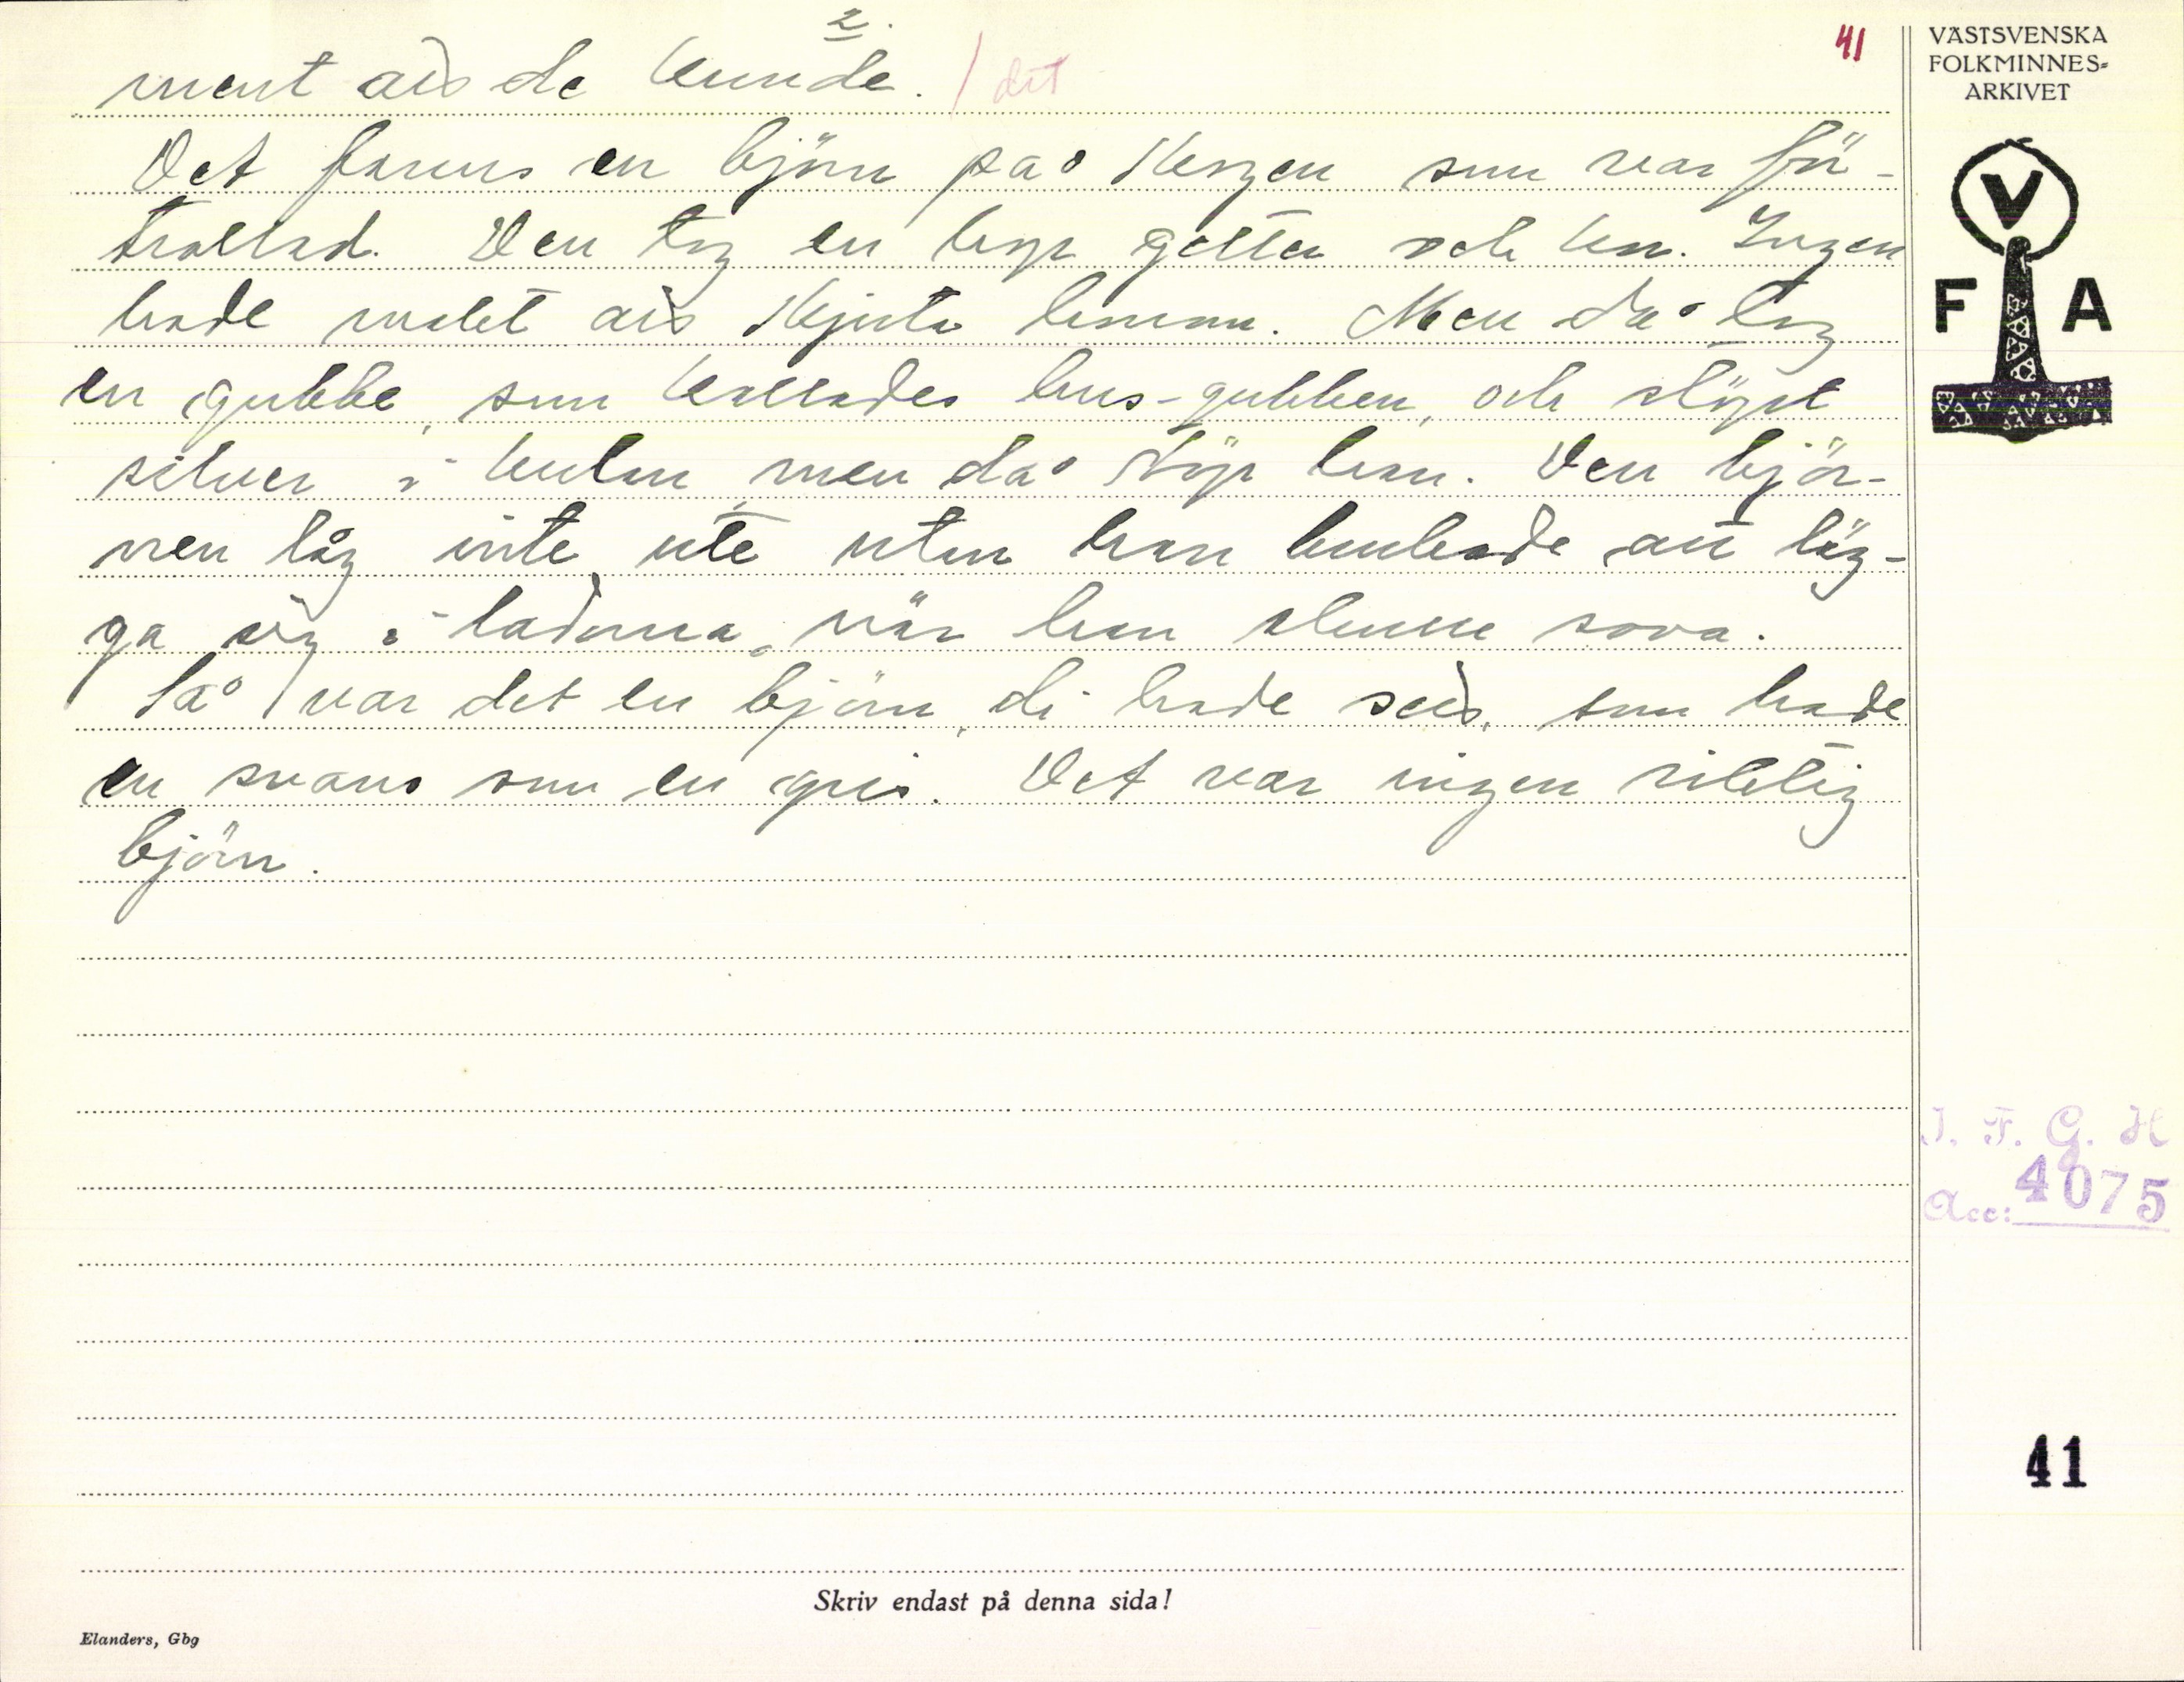 2.
41
ment att de kunde. / det
Det fanns en björn på skogen som var för-
trollad. Den tog en hop getter och kor. Ingen
hade maket att skjuta honom. Men då tog
en gubbe, som kallades hus-gubben, och stöpt
silver i kulan, men då stöp han. Den björ-
nen låg inte ute utan han brukade att läg-
ga sig i ladorna, när han skulle sova.
Så var det en björn, di hade sett, som hade
en svans som en gris. Det var ingen riktig
björn.
VÄSTSVENSKA
FOLKMINNES-
ARKIVET
V
F A
I. F. G. H
Acc: 4075
41
Skriv endast på denna sida!
Elanders, Gbg